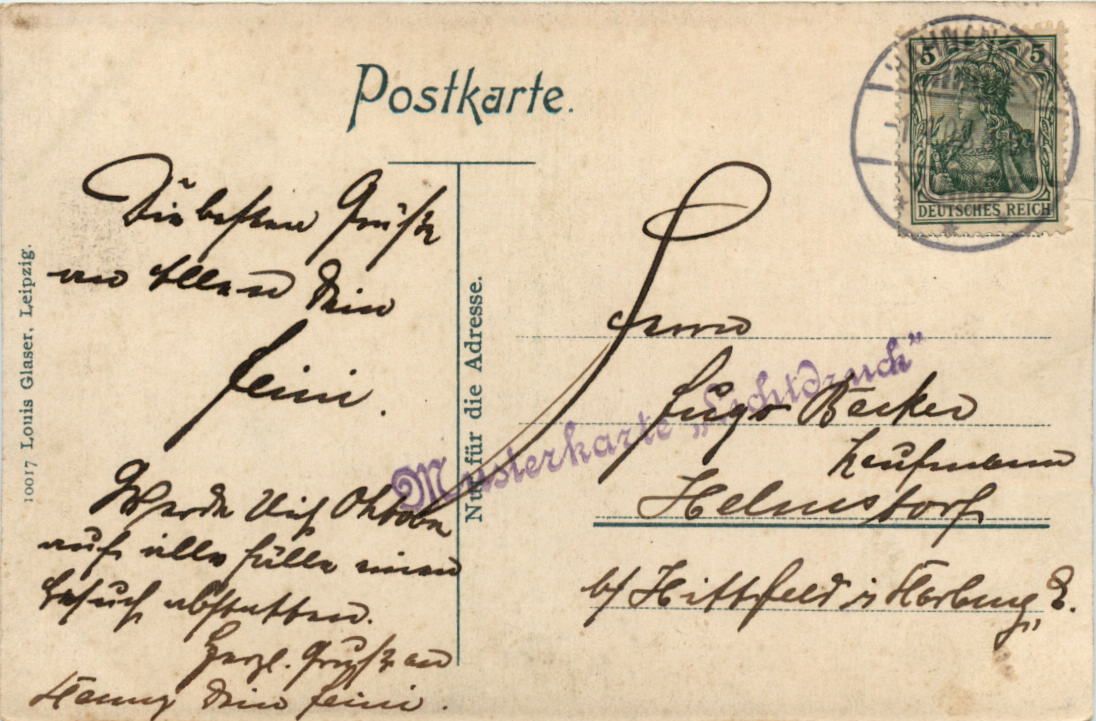 Postkarte.
5 5
DEUTSCHES REICH
Die besten Grüße
an Allen Dein
Heini.
Werde Dich Oktober
auf alle Fälle einen
Besuch abstatten.
Herzl. Grüße an
Dein Heini.
Herrn
Hugo Becker
Kaufmann
Helmstorf
b/ Hittfeld Harburg E.
Musterkarte „Lichtdruck"
Nur für die Adresse.
10017 Louis Glaser, Leipzig.